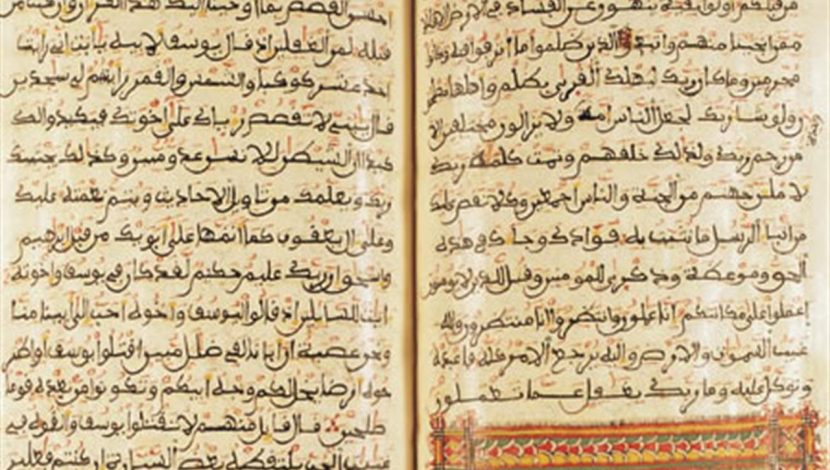 من قبلكم اولوا بقية ينهون عن الفساد في الارض الا
ممن انجينا منهم واتبع الذين ظلموا ما اترفوا فيه وكانوا
مجرمين وما كان ربك ليهلك القرى بظلم واهلها
ولو شا ربك لجعل الناس امة ولا يزالون مختلفين الا
من رحم ربك ولذلك خلقهم وتمت كلمة ربك
لاملن جهنم من الجنة والناس اجمعين وكلا نقص عليك
من انبا الرسل ما نثبت به فوادك وجاك في هذه
الحق وموعظة وذكرى للمومنين وقل للذين لا يومنون
اعملوا على مكانتكم انا عملون وانتظروا انا منتظرون ولله
غيب السموت والارض واليه يرجع الامر كله فاعبده
وتوكل عليه وما ربك بغفل عما تعملون
احسن القصص بما اوحينا اليك هذا القران وان كنت من
قبله لمن الغفلين اذ قال يوسف لابيه يابت اني رايت
احد عشر كوكبا والشمس والقمر رايتهم لي سجدين
قال يبني لا تقصص رياك على اخوتك فيكيدوا لك
كيدا ان الشيطن للانسن عدو مبين وكذلك يجتبيك
ربك ويعلمك من تاويل الاحاديث ويتم نعمته عليك
وعلى ال يعقوب كما اتمها على ابويك من قبل ابرهيم
واسحق ان ربك عليم حكيم لقد كان في يوسف واخوته
ايت للسايلين اذ قالوا ليوسف واخوه احب الى ابينا منا
ونحن عصبة ان ابانا لفي ضلل مبين اقتلوا يوسف او اطر
حوه ارضا يخل لكم وجه ابيكم وتكونوا من بعده قوما
صلحين قال قايل منهم لا تقتلوا يوسف والقوه في
غيبت الجب يلتقطه بعض السيارة ان كنتم فعلين